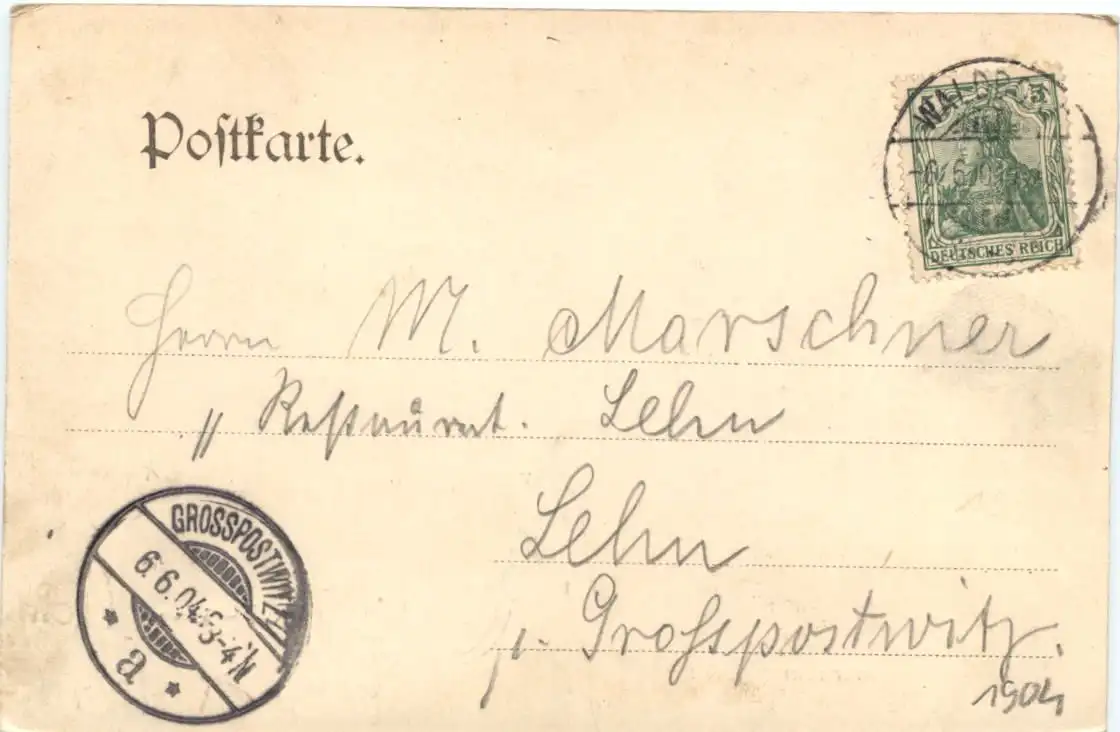 Postkarte.
5
DEUTSCHES REICH
Herrn M. Marschner
" Restaurat. Lehn
Lehn
p. Grosspostwitz.
1904
GROSSPOSTWITZ
6.6.04 3-4 N
* a *